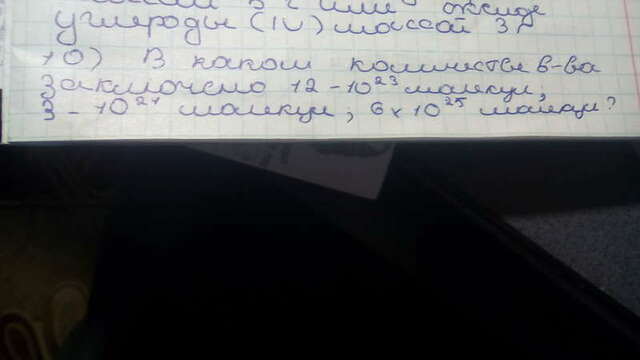 3 г или оксиде
углероды (IV) массой 3г
10) В каком количестве в-ва
заключено 12 - 10²³ малекул,
3 - 10²¹ малекул; 6 х 10²⁵ малекул?